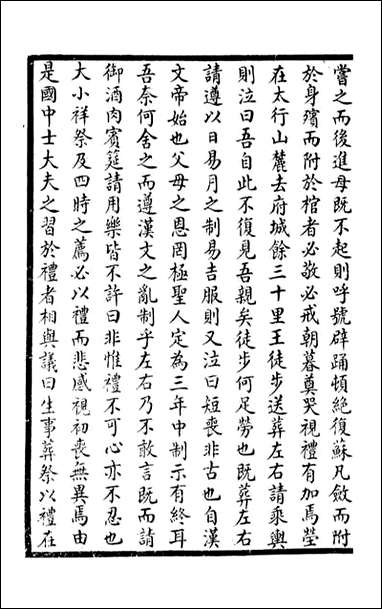 嘗之而後進母既不起則呼號辟踊頓絶復蘇凡斂而附
於身殯而附於棺者必敬必戒朝暮奠哭視禮有加焉塋
在太行山麓去府城餘三十里王徒步送葬左右請乘輿
則泣曰吾自此不復見吾親矣徒步何足勞也既葬左右
請遵以日易月之制易吉服則又泣曰短喪非古也自漢
文帝始也父母之恩罔極聖人定為三年中制示有終耳
吾奈何舍之而遵漢文之亂制乎左右乃不敢言既而請
御酒肉賓筵請用樂皆不許曰非惟禮不可心亦不忍也
大小祥祭及四時之薦必以禮而悲慼視初喪無異焉由
是國中士大夫之習於禮者相與議曰生事葬祭以禮在